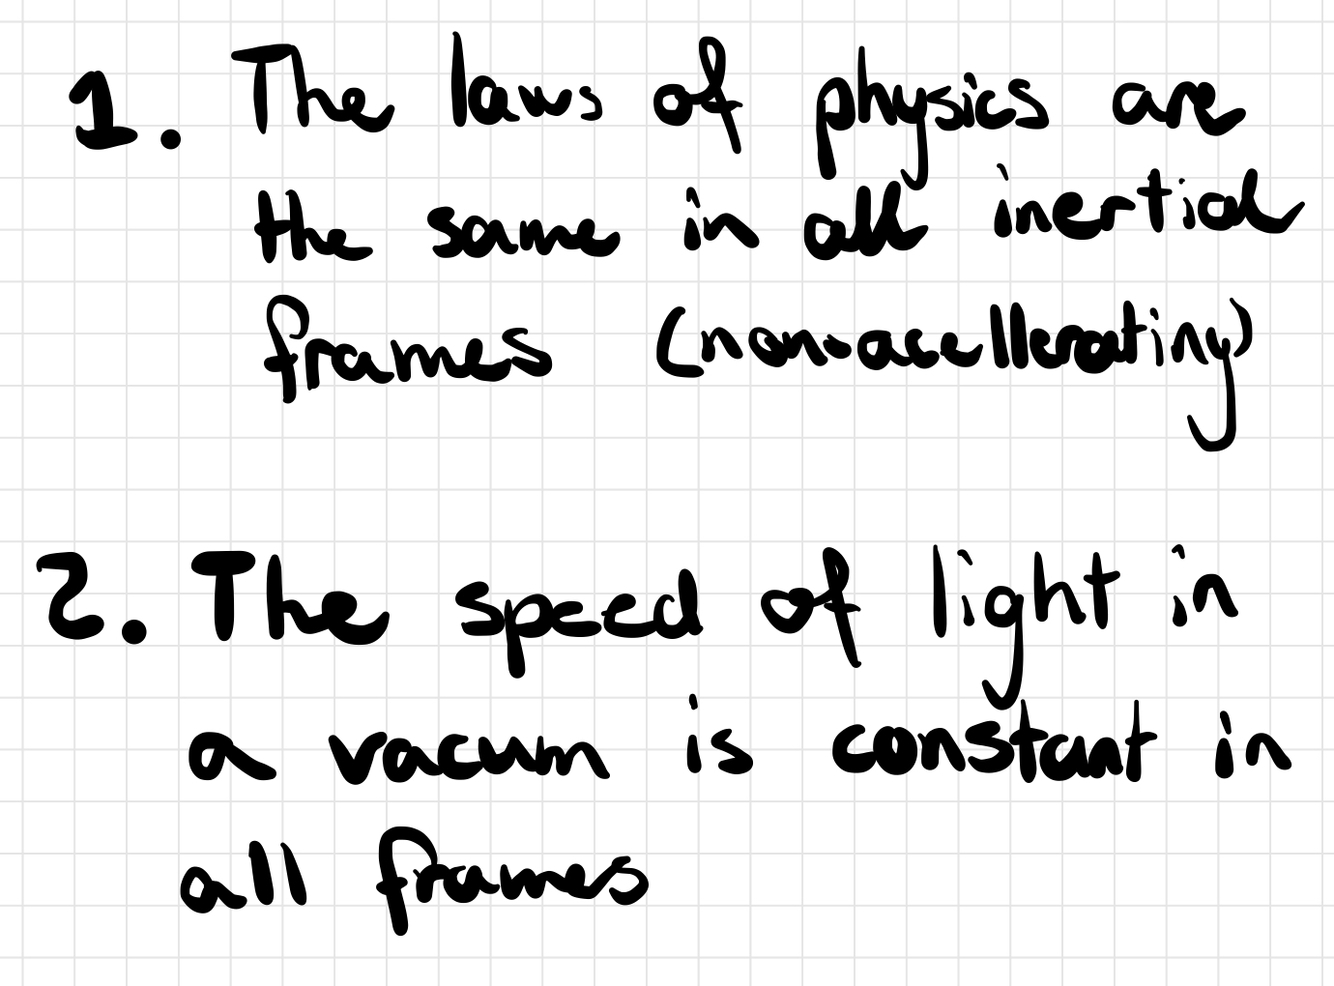 1. The laws of physics are
the same in all inertial
frames (non-acellerating)
2. The speed of light in
a vacum is constant in
all frames